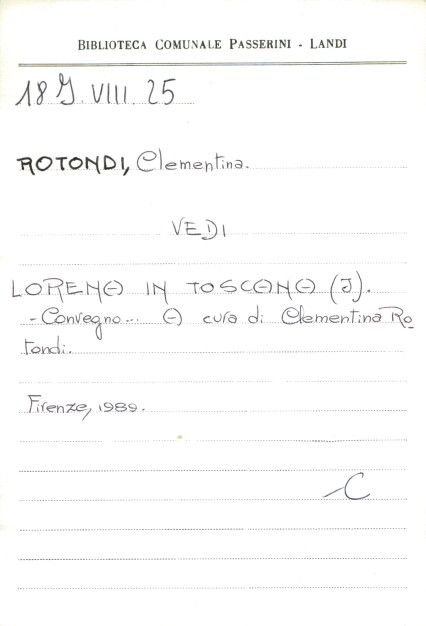 BIBLIOTECA COMUNALE PASSERINI - LANDI
18 J. VIII. 25
ROTONDI, Clementina.
VEDI
LORENA IN TOSCANA (I).
- Convegno... A cura di Clementina Ro-
tondi.
Firenze, 1989.
C